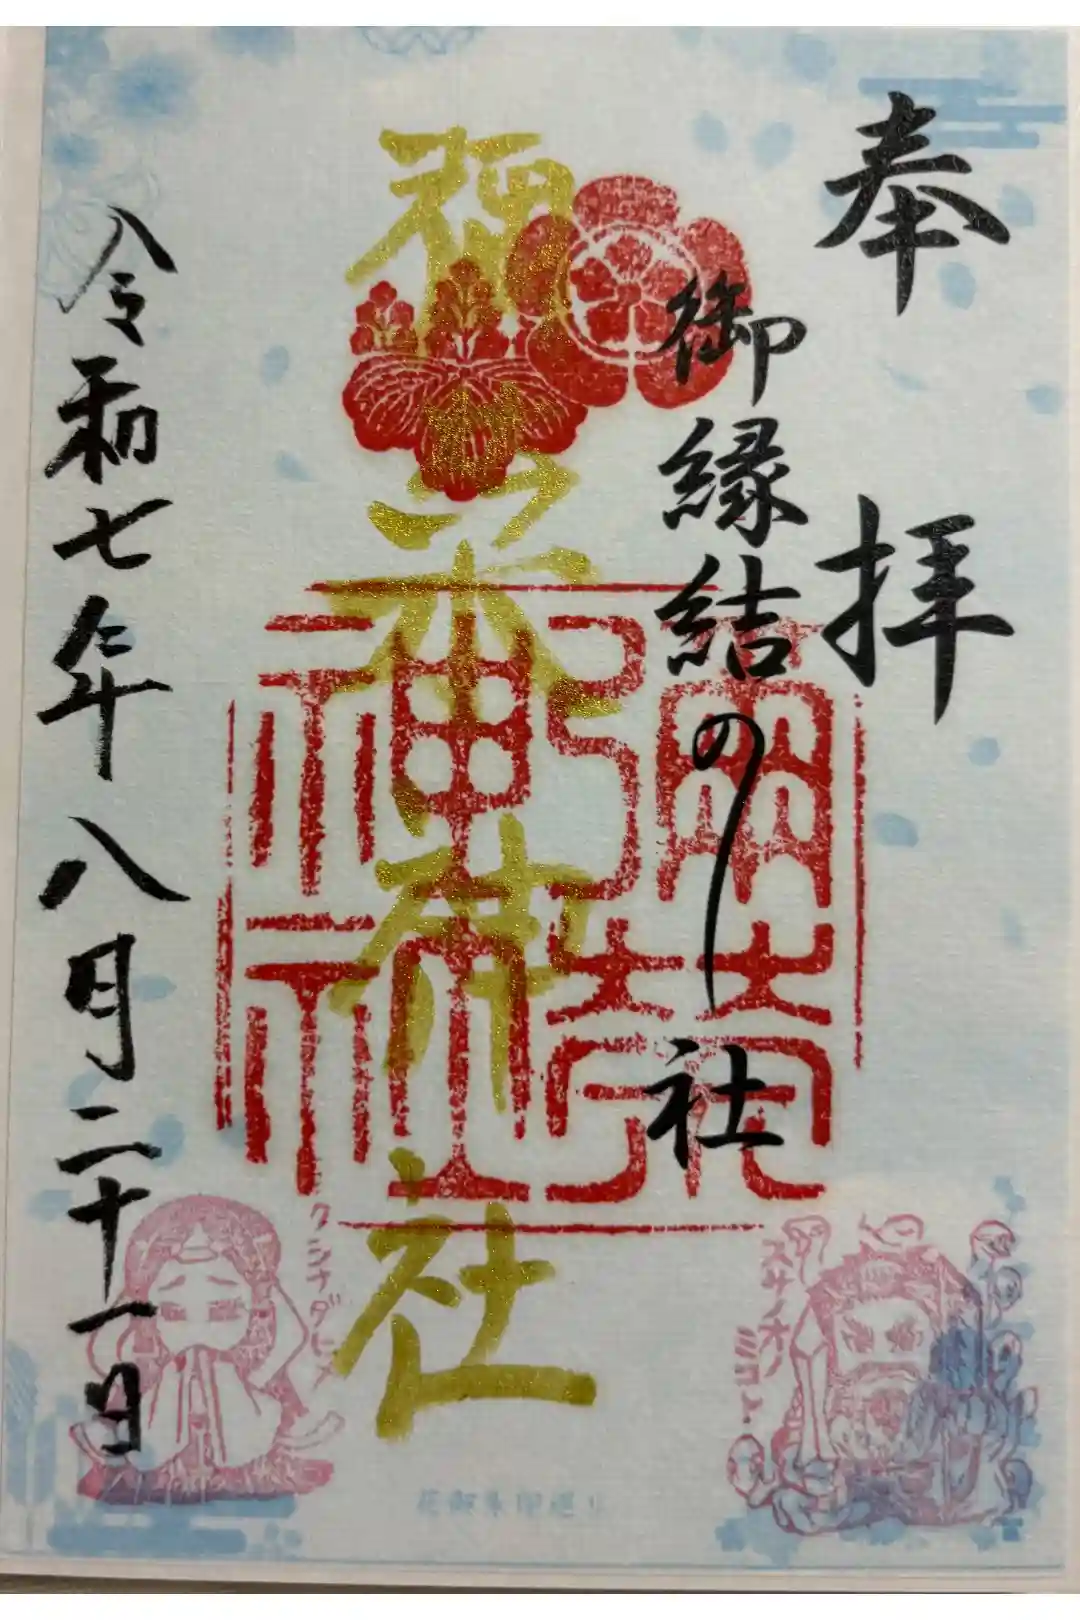 奉拝
御縁結の社
彌栄神社
令和七年八月二十一日
スサノオノミコト
クシナダヒメ
花御朱印巡り